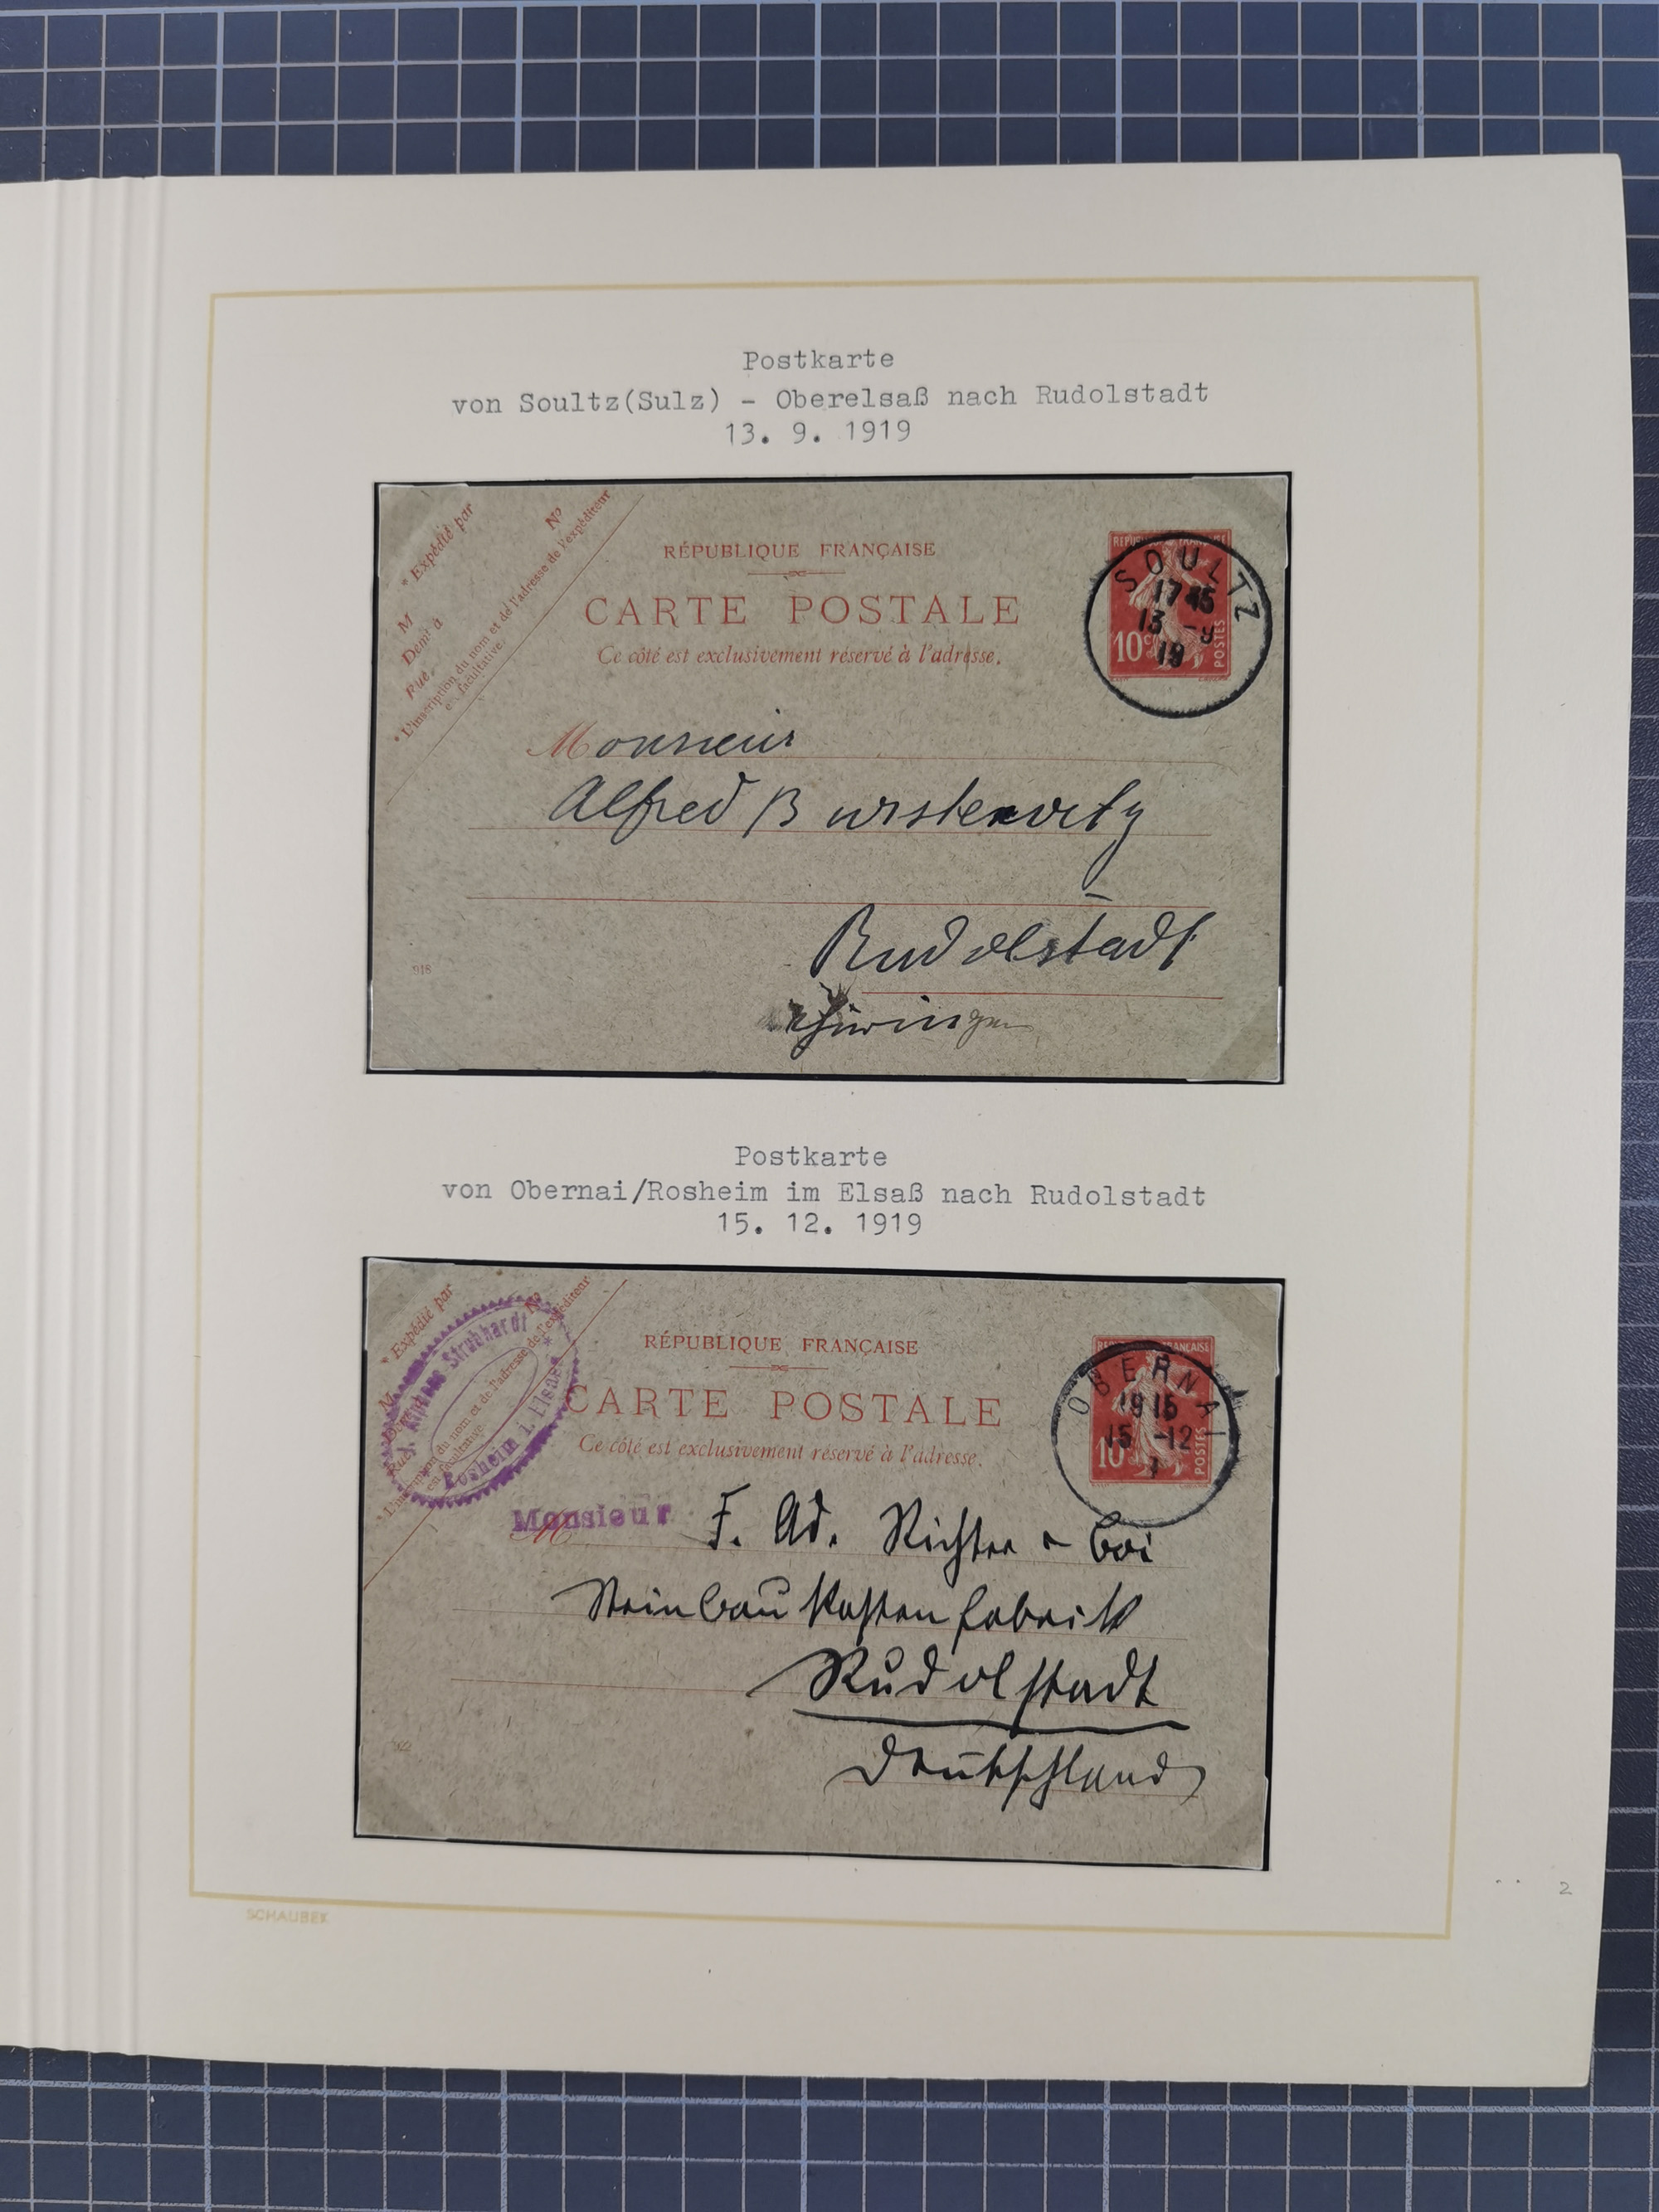 Postkarte
von Soultz(Sulz) - Oberelsaß nach Rudolstadt
13. 9. 1919
* Expédié par
M
Demt à
Rue
N°
* L'inscription du nom et de l'adresse de l'expéditeur
est facultative.
RÉPUBLIQUE FRANÇAISE
CARTE POSTALE
Ce côté est exclusivement réservé à l'adresse.
RÉPUBLIQUE FRANÇAISE
10c
POSTES
SOULTZ
17 45
13 -9
19
Monsieur
Alfred
Rudolstadt
918
Postkarte
von Obernai/Rosheim im Elsaß nach Rudolstadt
15. 12. 1919
* Expédié par
N°
* L'inscription du nom et de l'adresse de l'expéditeur
est facultative.
Rosheim i. Elsass
RÉPUBLIQUE FRANÇAISE
CARTE POSTALE
Ce côté est exclusivement réservé à l'adresse.
10
POSTES
OBERNAI
19 15
15 -12
Monsieur F. Ad. Richter & Cie
Steinbaukastenfabrik
Rudolstadt
Deutschland
SCHAUBEK
2